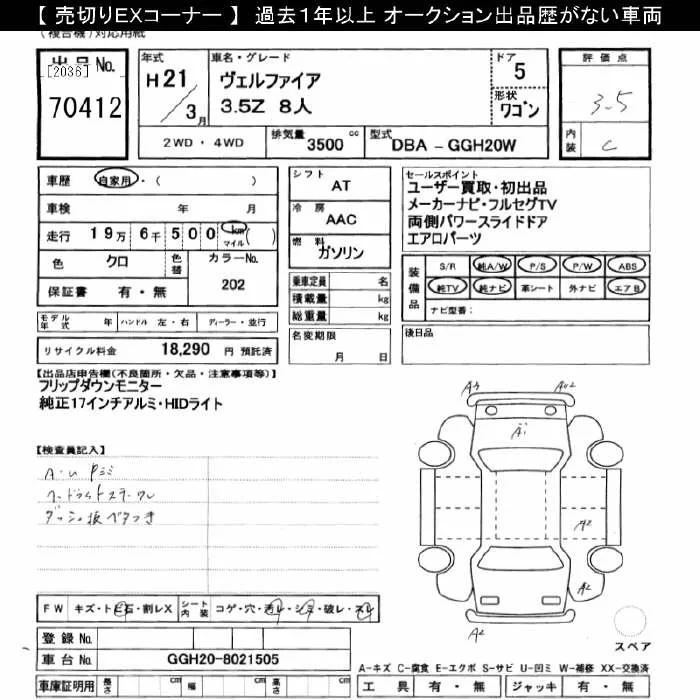 【 売切りEXコーナー 】 過去1年以上 オークション出品歴がない車両
(複合機)対応用紙
出品No.
[2036]
70412
年式
H21
/3月
車名・グレード
ヴェルファイア
3.5Z 8人
ドア
5
形状
ワゴン
評価点
3.5
内装
C
2WD ・ 4WD
排気量 3500 cc
型式 DBA - GGH20W
車歴 自家用・( )
車検 年 月
走行 19万 6千 500 km マイル ( )
色 クロ 色替 カラーNo. 202
保証書 有・無
シフト AT
冷房 AAC
燃料 ガソリン
乗車定員 名
積載量 kg
総重量 kg
セールスポイント
ユーザー買取・初出品
メーカーナビ・フルセグTV
両側パワースライドドア
エアロパーツ
装備品
S/R 純A/W P/S P/W ABS
純TV 純ナビ 革シート 外ナビ エアB
ナビ型番:
モデル年式 年 ハンドル 左・右 ディーラー・並行
リサイクル料金 18,290 円 預託済
名変期限
月 日
後日品
【出品店申告欄(不良箇所・欠品・注意事項等)】
フリップダウンモニター
純正17インチアルミ・HIDライト
【検査員記入】
A・U Pミミ
ダッシュ板ベタつき
A3
AU2
A1
A2
A2
A2
FW キズ・トビ石・割レX シート内装 コゲ・穴・汚レ・シミ・破レ・スレ
登録No.
車台No. GGH20-8021505
車庫証明用 長さ cm 幅 cm 高さ cm
スペア
A-キズ C-腐食 E-エクボ S-サビ U-凹ミ W-補修 XX-交換済
工具 有・無 ジャッキ 有・無